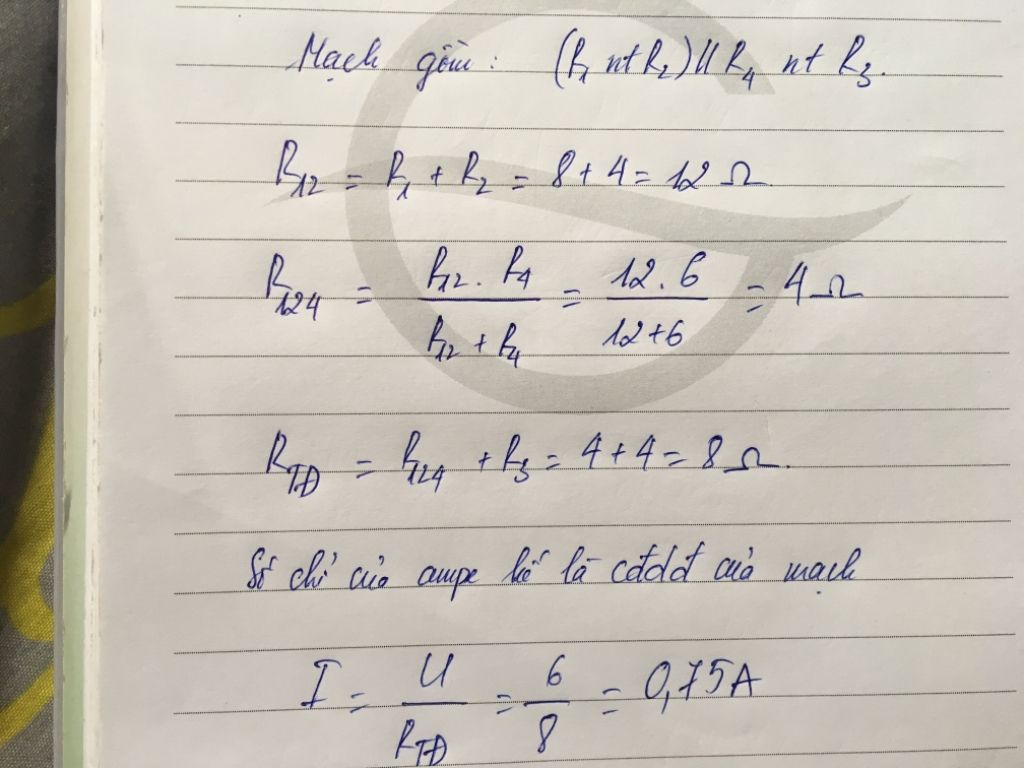 Mạch gồm : (R₁ nt R₂) // R₄ nt R₃.
R₁₂ = R₁ + R₂ = 8 + 4 = 12 Ω
R₁₂₄ = (R₁₂ . R₄)/(R₁₂ + R₄) = (12 . 6)/(12 + 6) = 4 Ω
R_TĐ = R₁₂₄ + R₃ = 4 + 4 = 8 Ω.
Số chỉ của ampe kế là cđdđ của mạch
I = U/R_TĐ = 6/8 = 0,75A